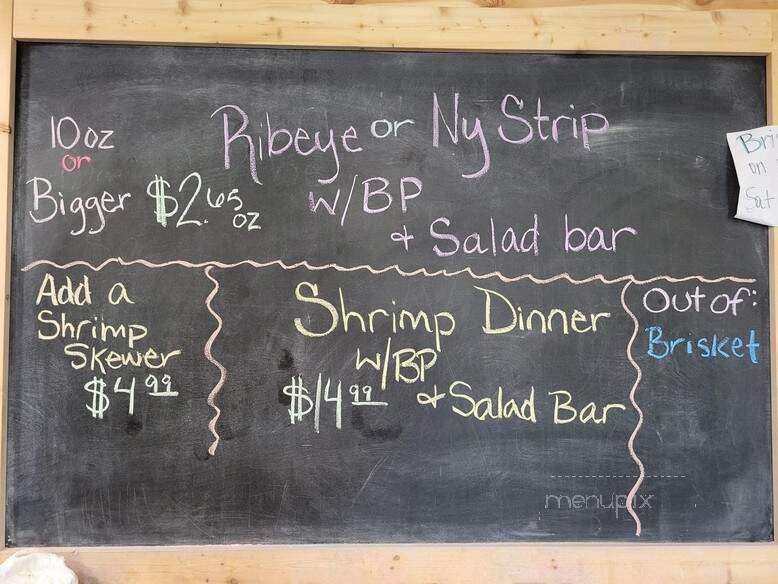 10 oz
or
Bigger $2.65 oz
Ribeye or Ny Strip
W/BP
& Salad bar
Add a
Shrimp
Skewer
$4.99
Shrimp Dinner
W/BP
$14.99 & Salad Bar
Out of:
Brisket
Bri
on
Sat
menupix